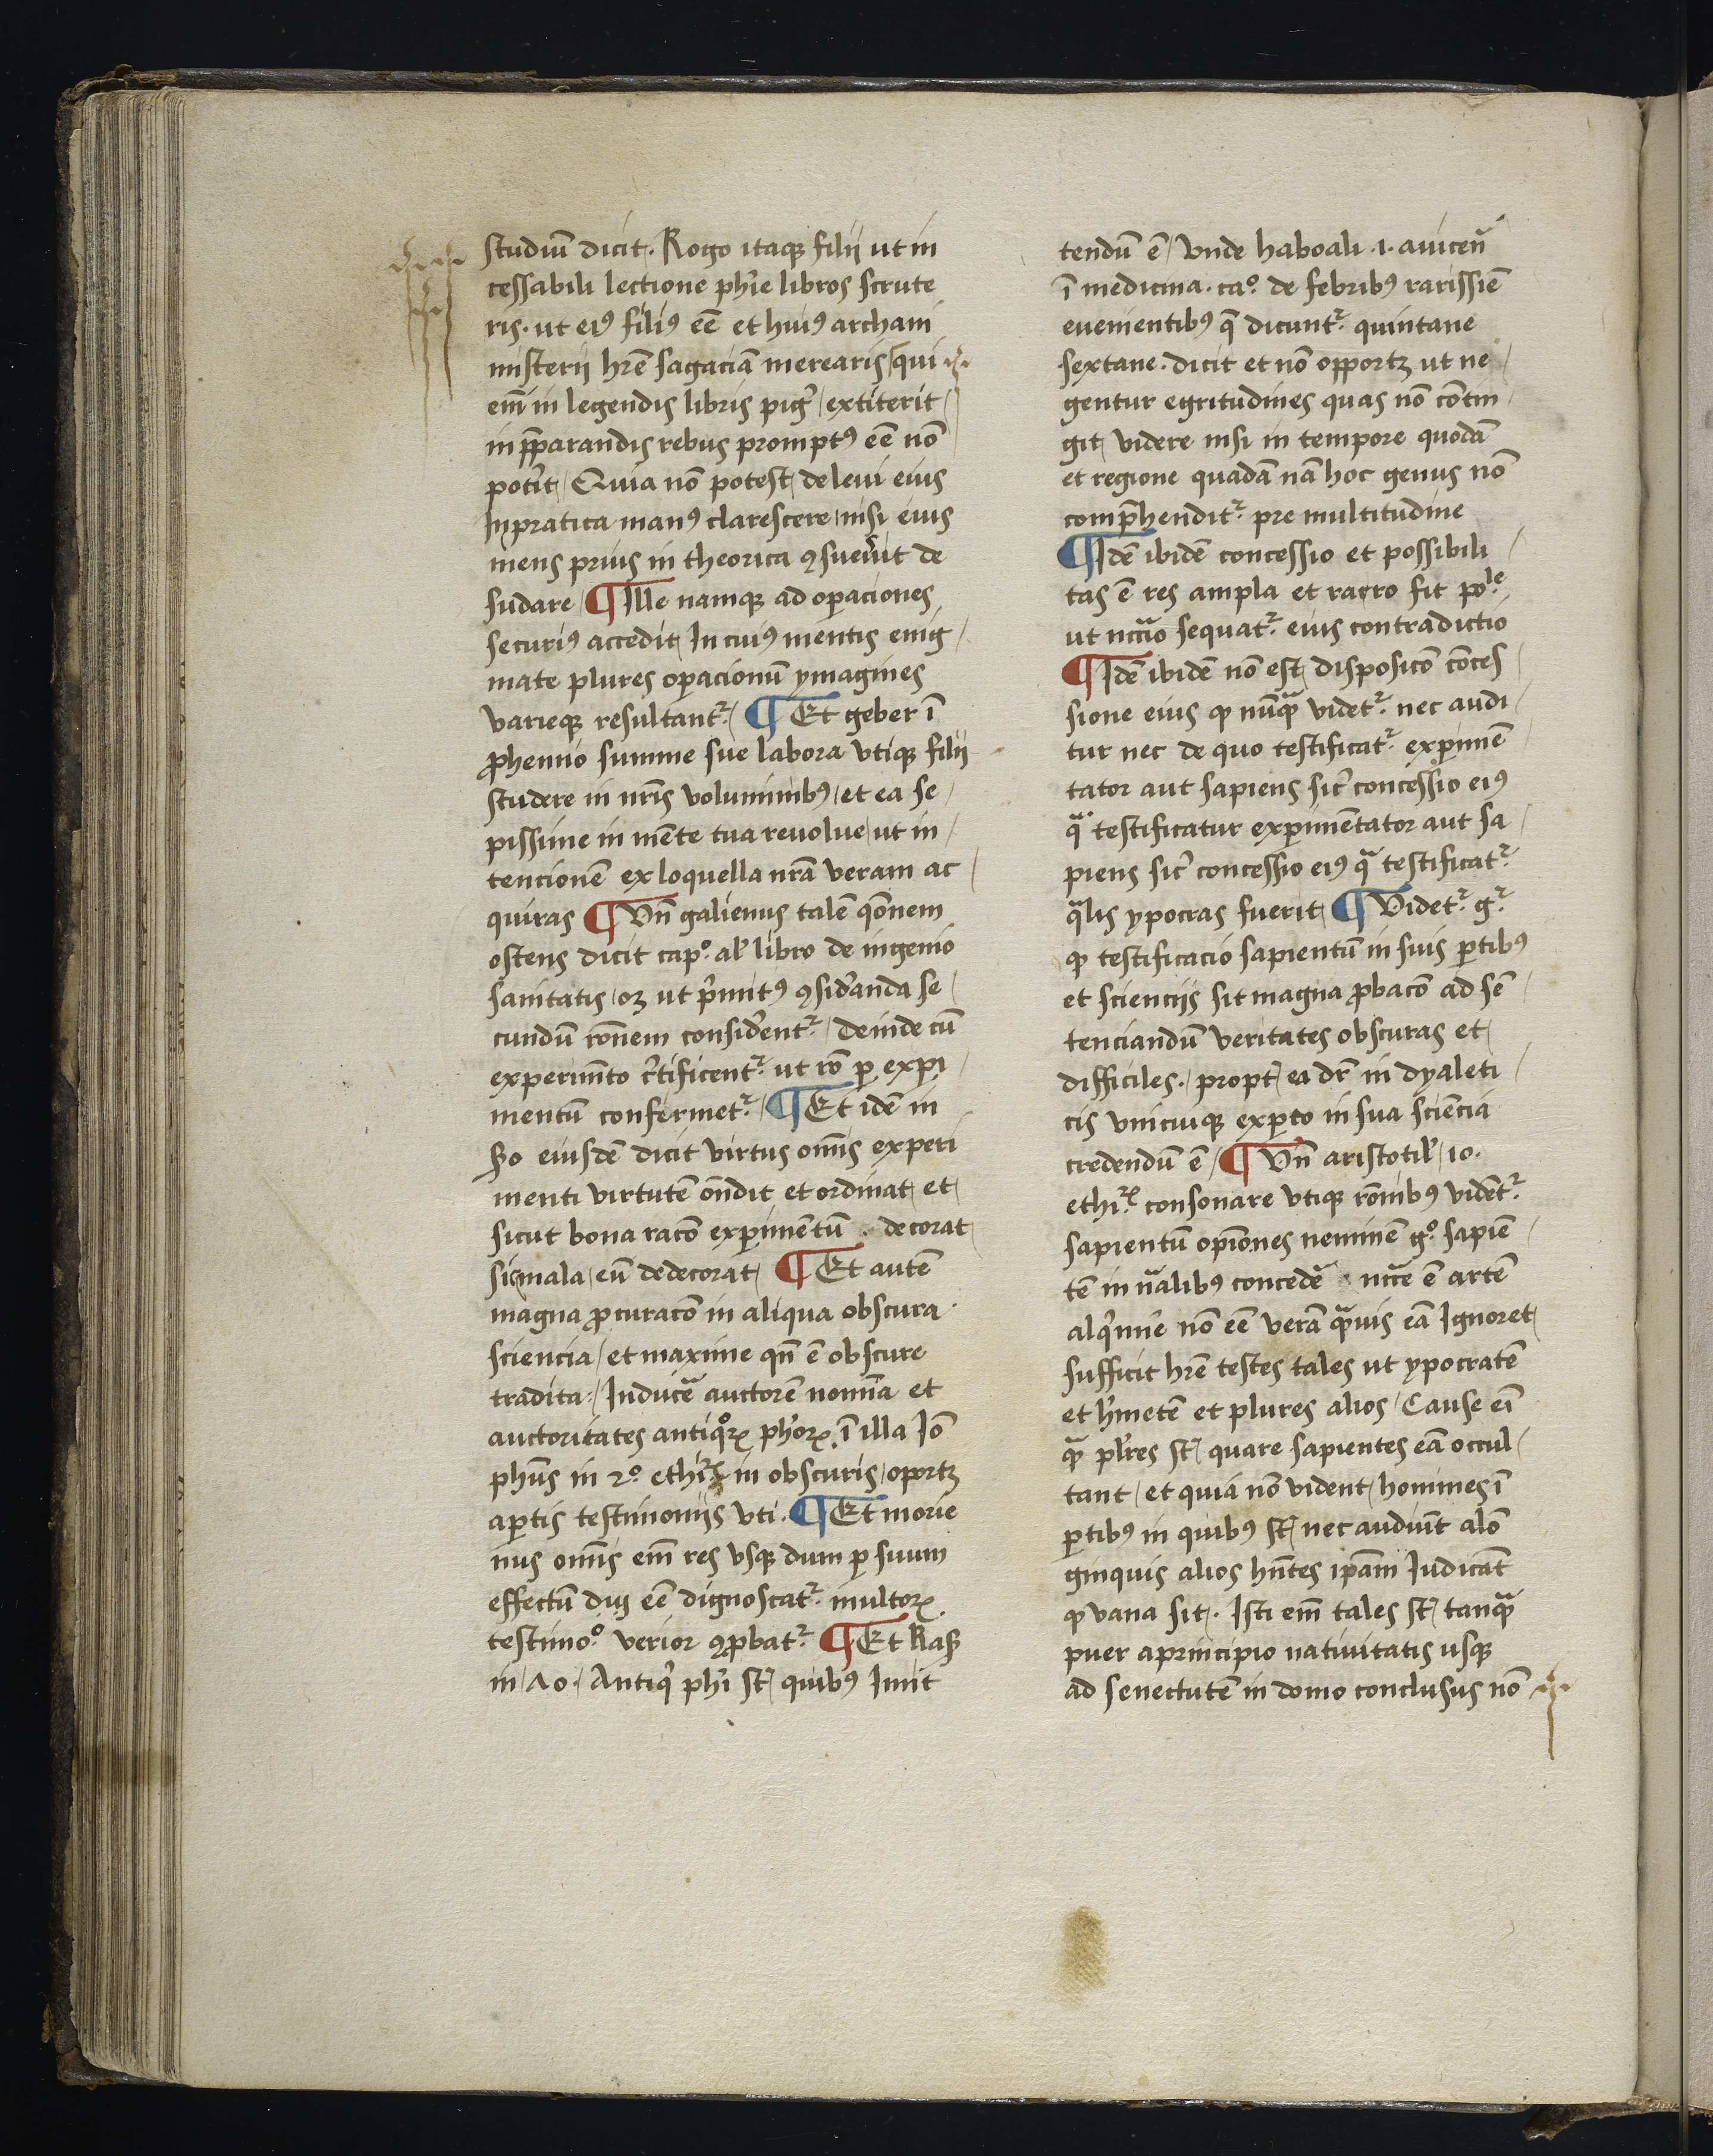 studiū dicit. Rogo itaqꝫ filij ut in
cessabili lectione ph̄ie libros scrute
ris. ut eiꝰ filiꝰ eē et huiꝰ archani
misterij hr̄e sagaciā merearis / qui
em̄ in legendis libris pigr̄ / extiterit /
in p̄parandis rebus promptꝰ eē nō
pot̄it / Quia nō potest de leui eius
In pratica manꝰ clarescere / nisi eius
mens prius in theorica ꝯsueu̓it de
sudare / ¶ Ille namqꝫ ad oꝑaciones
securiꝰ accedit In cuiꝰ mentis enig /
mate plures oꝑacionū ymagines
varieqꝫ resultantᷣ / ¶ Et geber ī
ꝓhemio summe sue labora vtiqꝫ filij
studere in nr̄is voluminibꝰ / et ea se /
pissime in mēte tua reuolue / ut in /
tencionē ex loquella nr̄a veram ac
quiras ¶ Vn̄ galienus talē qōnem
ostens dicit cap̊. al̓ libro de ingenio
sanitatis / oꝫ ut p̓mitꝰ ꝯsid̓anda se /
cundū rōnem consid̓entᷣ / deinde cū
experimēto c̓tificentᷣ ut rō ꝑ expi /
mentū confermetᷣ / ¶ Et idē in
8o eiusdē dicit virtus om̄is experi
menti virtutē on̄dit et ordinat et
sicut bona racō exꝑimētū decorat
sic mala / eū dedecorat ¶ Et autē
magna ꝓcuracō in aliqua obscura
sciencia / et maxime qn̄ ē obscure
tradita: / Inducē auctorē nomīa et
auctoritates antiqͦꝝ ph̓oꝝ ī illa Iō
phūs in 2º ethiꝝ in obscuris / oportꝫ
aꝑtis testimonijs vti. ¶ Et morie
nus om̄is em̄ res vsqꝫ dum ꝑ suum
effectū diu eē dignoscatᷣ. multoꝝ
testimoº. verior ꝯꝓbatᷣ ¶ Et Ras
in / Λ0. / Antiq̓ ph̓i st̄ quibꝰ Innit
tendū ē / Vnde haboali .i. auiceñ
ī medicina. caº. de febribꝰ rarissiē
euenientibꝰ q̄ dicuntᷣ quintane
sextane. dicit et nō opportꝫ ut ne /
gentur egritudines quas nō cōtin /
git / videre nisi in tempore quodā
et regione quadā nā hoc genus nō
comp̄henditᷣ pre multitudine
¶ Idē ibidē concessio et possibili /
tas ē res ampla et rarro fit poˡᵉ
ut nccāio sequatᷣ eius contradictio
¶ Idē ibidē nō est disposicō cōces /
sione eius ꝙ nūqᷓ videtᷣ nec audi /
tur nec de quo testificatᷣ exꝑimē /
tator aut sapiens sic̓ concessio eiꝰ
qᷓ testificatur exꝑimētator aut sa /
piens sic̓ concessio eiꝰ qᷓ testificatᷣ
qᷓlis ypocras fuerit ¶ Videtᷣ gᷣ
ꝙ testificacio sapientū in suis ꝑtibꝰ
et sciencijs sit magna ꝓbacō ad sē /
tenciandū veritates obscuras et
difficiles. / propt̄ ea dr̄ in dyaleti /
cis vnicuiqꝫ exꝑto in sua sciēcia
credendū ē / ¶ Vn̄ aristotil̓ / 10.
ethiꝝ consonare vtiqꝫ rōnibꝰ vidētᷣ
sapientū opīones neminē gº sapiē /
tē in nᷓalibꝰ concedē ncc̄e ē artē
alq̓mie nō eē verā qᷓuis eā Ignoret /
sufficit hr̄e testes tales ut ypocratē
et h̓metē et plures alios / Cause eī
qᷓ pl̓res st̄ quare sapientes eā occul /
tant / et quia nō vident homines ī
ꝑtibꝰ in quibꝰ st̄ nec audiūt alō
ginquis alios hn̄tes ip̄am Iudicāt
ꝙ vana sit. Isti em̄ tales st̄ tanqᷓ
puer a principio natiuitatis usqꝫ
ad senectutē in domo conclusus nō